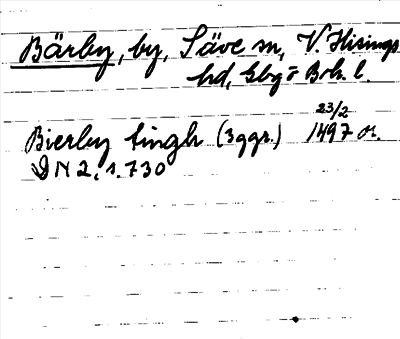 Bärby, by, Säve sn, V. Hisings
hd, Gbg o Boh. l.
Bierby tingh (3 ggr.) 23/2 1497 or.
DN 2, s. 730